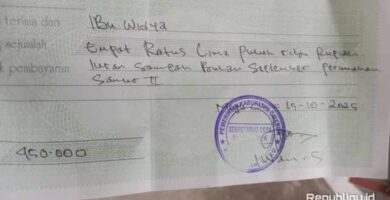 terima dari IBu Widya
sejumlah Empat Ratus Lima puluh ribu Rupiah
k pembayaran Iuran Sampah Bulan September Perumahan
Sanur II
15-10-2025
450.000
PEMERINTAH KABUPATEN
SEKRETARIS DESA
Republiqu.id